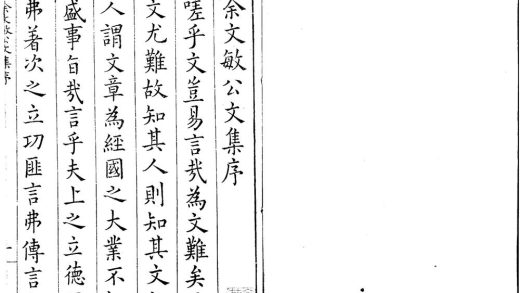 余文敏公文集序
嗟乎文豈易言哉為文難矣
文尤難故知其人則知其文
人謂文章為經國之大業不
盛事旨哉言乎夫上之立德
弗著次之立功匪言弗傳言
余文敏公文集序